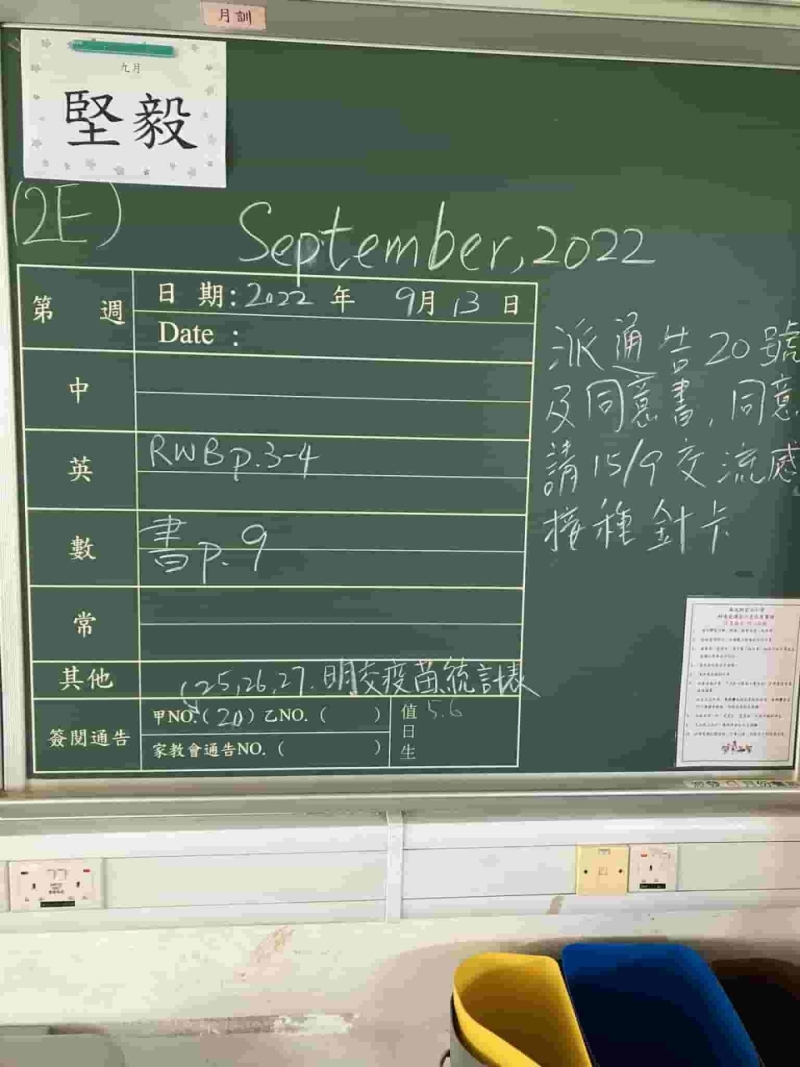 月訓
九月
堅毅
(2E)
September, 2022
第 週
日 期：2022 年 9月 13 日
Date :
中
英
RWB p.3-4
數
書 p.9
常
其他
25,26,27. 明交疫苗統計表
簽閱通告
甲NO.( 20 ) 乙NO. ( )
家教會通告NO. ( )
值日生
5.6
派通告20號
及同意書, 同意
請 15/9 交 流感
接種針卡